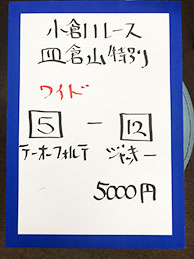 小倉11レース
皿倉山特別
ワイド
5 - 12
テーオーフォルテ ジャッキー
5000円